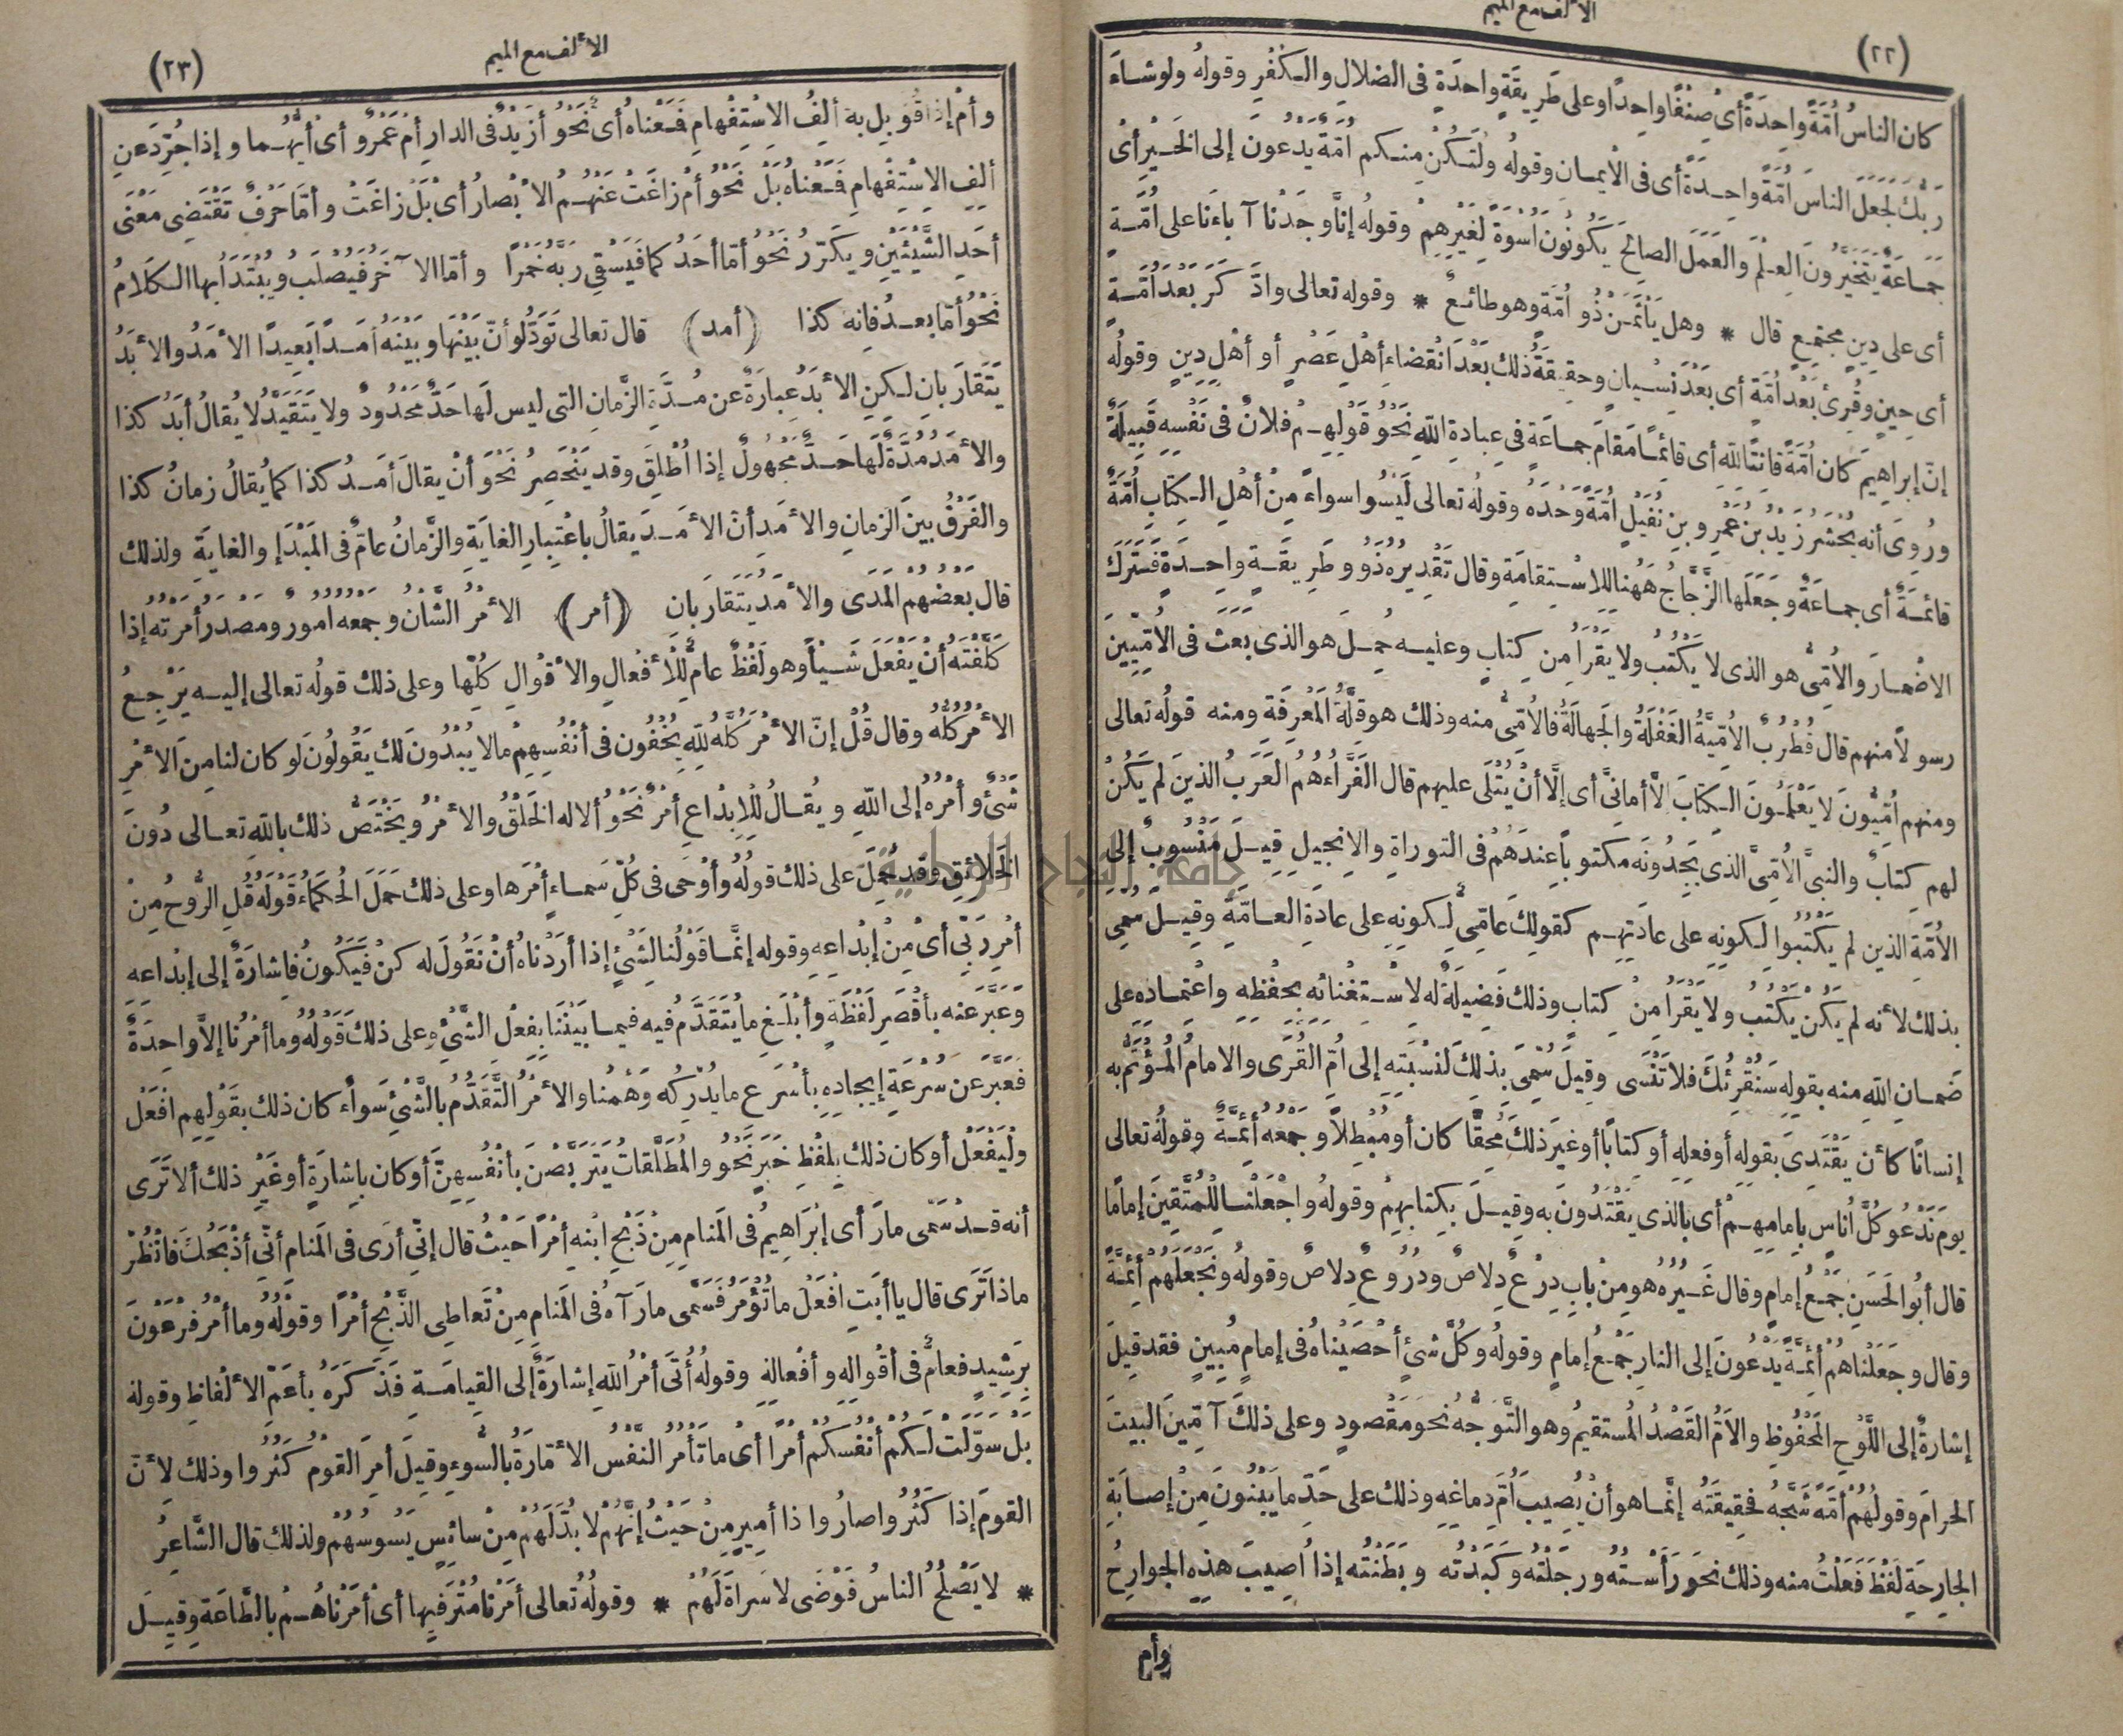 الألف مع الميم
(٢٢)
كان الناسُ أُمَّةً واحِدَةً أى صِنْفًا واحِدًا وعلى طَرِيقَةٍ واحِدَةٍ فى الضلالِ والكُفْرِ وقولُه ولوشاءَ
رَبُّكَ لَجَعَلَ الناسَ أُمَّةً واحِدَةً أى فى الأيمانِ وقولُه ولْتَكُنْ منكم أُمَّةٌ يَدْعُونَ إلى الخَيْرِ أىْ
جَمَاعَةٌ يَتَخَيَّرُونَ العِلْمَ والعَمَلَ الصالِحَ يَكُونُونَ أُسْوَةً لِغَيْرِهِمْ وقولُه إنَّا وجَدْنا آباءَنا على أُمَّةٍ
أى على دِينٍ مجتمِعٍ قال * وهل يَأْثَمَنْ ذُو أُمَّةٍ وهو طائعُ * وقوله تعالى وادَّكَرَ بَعْدَ أُمَّةٍ
أى حِينٍ وقُرِئَ بَعْدَ أُمَّةٍ أى بَعْدَ نِسْيانٍ وحقِيقَةُ ذلك بَعْدَ انْقضاءِ أهْلِ عَصْرٍ أو أهْلِ دِينٍ وقولُه
إنَّ إبراهِيمَ كان أُمَّةً قانتًا للهِ أى قائمًا مَقامَ جماعَةٍ فى عِبادةِ اللهِ نَحْوُ قَوْلِهِمْ فلانٌ فى نَفْسِه قَبِيلَةٌ
ورُوِىَ أنه يُحْشَرُ زَيْدُ بنُ عَمْرِو بنِ نُفَيْلٍ أُمَّةً وَحْدَهُ وقولُه تعالى لَيْسُوا سواءً مِنْ أهْلِ الكِتابِ أُمَّةٌ
قائمَةٌ أى جماعَةٌ وجَعَلَها الزَّجَّاجُ هَهُنا لِلاِسْتِقامَةِ وقال تَقْدِيرُه ذُوُو طَرِيقَةٍ واحِدَةٍ فَتَرَكَ
الاضْمارَ والأُمِّىُّ هو الذى لا يَكْتُبُ ولا يَقْرَأُ مِن كِتابٍ وعليه حُمِلَ هو الذى بَعَثَ فى الأُمِّيِّينَ
رسولاً منهم قال قُطْرُبٌ الأُمِّيَّةُ الغَفْلَةُ والجَهالَةُ فالأُمِّىُّ منه وذلك هو قِلَّةُ المَعْرِفَةِ ومنه قولُه تعالى
ومنهم أُمِّيُّونَ لا يَعْلَمُونَ الكِتابَ إلاَّ أمانِىَّ أى إلَّا أنْ يُتْلَى عليهم قال الفَرَّاءُ هُمُ العَرَبُ الذينَ لم يَكُنْ
لهم كِتابٌ والنبىَّ الأُمِّىَّ الذى يَجِدُونَه مكتوبًا عِندَهُمْ فى التوراةِ والإنجِيلِ قِيلَ مَنْسُوبٌ إلى
الأُمَّةِ الذينَ لم يَكْتُبُوا لكونِه على عادَتِهِم كقولِكَ عامِّىٌّ لكونِه على عادَةِ العامَّةِ وقِيلَ سُمِّىَ
بذلك لأنه لم يَكُنْ يَكْتُبُ ولا يَقْرَأُ مِنْ كِتابٍ وذلك فَضِيلَةٌ له لاسْتِغْنائه بحِفْظِه واعْتِمادِه على
ضَمانِ اللهِ منه بقوله سَنُقْرِئُكَ فلا تَنْسَى وقِيلَ سُمِّىَ بذلك لِنسْبَتِه إلى أُمِّ القُرَى والامامُ المُؤْتَمُّ به
إنسانًا كأن يَقْتَدِىَ بقولِه أو فعلِه أو كِتابًا أو غيرَ ذلك مُحِقًّا كان أو مُبْطِلاً وجَمْعُه أئمَّةٌ وقولُه تعالى
يومَ نَدْعُو كُلَّ أُناسٍ بإمامِهِمْ أى بالذى يَقْتَدُونَ به وقِيلَ بكِتابِهِمْ وقولُه واجْعَلْنا لِلْمُتَّقِينَ إمامًا
قال أبُو الحَسَنِ جَمْعُ إمامٍ وقال غَيْرُه هو مِنْ بابِ دِرْعٍ دِلاصٍ ودُرُوعٍ دِلاصٍ وقولُه ونَجْعَلَهُمْ أئمَّةً
وقال وجَعَلْناهُمْ أئمَّةً يَدْعُونَ إلى النارِ جَمْعُ إمامٍ وقولُه وكُلَّ شىْءٍ أحْصَيْناهُ فى إمامٍ مُبِينٍ فقد قِيلَ
إشارةٌ إلى اللَّوْحِ المَحْفُوظِ والأَمُّ القَصْدُ المُستقيمُ وهو التَّوَجُّهُ نحوَ مَقْصُودٍ وعلى ذلك آمِّينَ البيتَ
الحرامَ وقولُهُمْ أمَّهُ شَجَّهُ فحقِيقَتُه إنَّما هو أنْ يُصِيبَ أُمَّ دِماغِه وذلك على حَدِّ ما يَبْنُونَ مِنْ إصابَةِ
الجارِحَةِ لَفْظَ فَعَلْتُ منه وذلك نحوُ رَأَسْتُهُ ورجَلْتُه وكَبَدْتُه وبَطَنْتُه إذا أُصِيبَ هذه الجوارِحُ
وأم
الألف مع الميم
(٢٣)
وأمْ إذا قُوبِلَ به ألِفُ الاِسْتِفْهامِ فَمَعْناهُ أى نَحْوُ أزَيْدٌ فى الدارِ أم عَمْرٌو أىْ أيُّهُما وإذا جُرِّدَ عَنِ
ألِفِ الاِسْتِفْهامِ فَمَعْناهُ بَلْ نَحْوُ أمْ زاغَتْ عَنْهُمُ الأبْصارُ أىْ بَلْ زاغَتْ وأمَّا حَرْفٌ تَقْتَضِى مَعْنَى
أحَدِ الشَّيْئَيْنِ ويكَرّرُ نَحْوُ أمّا أحَدُكما فَيَسْقِى رَبَّهُ خَمْرًا وأمّا الآخَرُ فَيُصْلَبُ ويُبْتَدَأُ بها الكَلامُ
نَحْوُ أمّا بعدُ فانه كذا (أمد) قال تعالى تَوَدُّ لوْ أنَّ بَيْنَها وبَيْنَهُ أمَدًا بَعِيدًا الأمَدُ والأبَدُ
يَتَقارَبانِ لكنِ الأبَدُ عِبارَةٌ عن مُدَّةِ الزَّمانِ التى ليس لَها حَدٌّ مَحْدُودٌ ولا يتَقَيَّدُ لا يُقالُ أبَدُ كذا
والأمَدُ مُدَّةٌ لَها حَدٌّ مَجْهُولٌ إذا أُطْلِقَ وقد يَنْحَصِرُ نَحْوَ أنْ يقالَ أمَدُ كذا كما يُقالُ زمانُ كذا
والفَرْقُ بينَ الزمانِ والأمَدِ أنَّ الأمَدَ يقالُ باعْتِبارِ الغايَةِ والزَّمانُ عامٌّ فى المَبْدَإ والغايةِ ولذلك
قال بَعْضُهُمُ المَدَى والأمَدُ يَتَقارَبانِ (أمر) الأمْرُ الشَّانُ وجَمْعُه أُمُورٌ ومَصْدَرُ أمَرْتُه إذا
كَلَّفْتَه أنْ يَفْعَلَ شَيْأً وهو لَفْظٌ عامٌّ لِلأفعالِ والأقوالِ كُلِّها وعلى ذلك قولُه تعالى إليه يَرْجِعُ
الأمْرُ كُلُّهُ وقال قُلْ إنَّ الأمْرَ كُلَّهُ للهِ يُخْفُونَ فى أنْفُسِهِمْ ما لا يُبْدُونَ لك يَقُولُونَ لو كان لنا مِنَ الأمْرِ
شىْءٌ وأمْرُهُ إلى اللهِ ويُقالُ لِلْإبْداعِ أمْرٌ نَحْوُ ألا له الخَلْقُ والأمْرُ ويَخْتَصُّ ذلك باللهِ تعالى دُونَ
الخَلائِقِ وقد حُمِلَ على ذلك قولُه وأوْحَى فى كُلِّ سَماءٍ أمْرَها وعلى ذلك حَمَلَ الحُكَماءُ قَوْلَه قُلِ الرُّوحُ مِنْ
أمْرِ رَبِّى أىْ مِنْ إبْداعِه وقوله إنَّما قَوْلُنا لِشَىْءٍ إذا أرَدْناهُ أنْ نَقُولَ له كنْ فَيَكُونُ فاشارَةٌ إلى إبْداعه
وعَبَّرَ عنه بأقْصَرِ لَفْظَةٍ وأبْلَغِ ما يُتَقَدَّمُ فيه فيما بيننَا بفِعْلِ الشَّىْءِ وعلى ذلك قَوْلُه وما أمْرُنا إلاَّ واحِدَةٌ
فَعَبَّرَ عن سُرْعَةِ إيجادِه بأسْرَعِ ما يُدْرِكُه وَهْمُنا والأمْرُ التَّقَدُّمُ بالشَّىْءِ سَواءٌ كان ذلك بقَوْلِهِم افْعَلْ
ولْيَفْعَلْ أو كان ذلك بِلفْظِ خَبَرٍ نَحْوُ والمُطَلَّقاتُ يَتَرَبَّصْنَ بأنْفُسِهِنَّ أو كان بإشارَةٍ أو غَيْرِ ذلك ألا تَرَى
أنه قد سَمَّى ما رَأى إبْرَاهِيمُ فى المَنامِ مِنْ ذَبْحِ ابْنِه أمْرًا حَيْثُ قال إنِّى أرَى فى المَنامِ أنِّى أذْبَحُكَ فانْظُرْ
ماذا تَرَى قال يا أبَتِ افْعَلْ ما تُؤْمَرُ فَسَمَّى ما رَآهُ فى المَنامِ مِنْ تَعاطِى الذَّبْحِ أمْرًا وقَوْلُه وما أمْرُ فِرْعَوْنَ
بِرَشِيدٍ فعامٌّ فى أقْوالِه وأفْعالِه وقولُه أتَى أمْرُ اللهِ إشارَةٌ إلى القِيامَةِ فَذَكَرَهُ بأعَمِّ الألْفاظِ وقوله
بَلْ سوَّلَتْ لَكُمْ أنْفُسُكُمْ أمْرًا أىْ ما تَأْمُرُ النَّفْسُ الأمّارَةُ بالسُّوءِ وقِيلَ أمِرَ القومُ كَثُرُوا وذلك لأنَّ
القومَ إذا كَثُرُوا صارُوا ذا أمِيرٍ مِنْ حَيْثُ إنَّهُمْ لا بُدَّ لَهُمْ مِنْ سائِسٍ يَسُوسُهُمْ ولذلك قال الشَّاعِرُ
* لا يَصْلُحُ الناسُ فَوْضَى لا سَراةَ لَهُمْ * وقولُه تعالى أمَرْنا مُتْرَفِيها أىْ أمَرْناهُمْ بالطَّاعَةِ وقِيلَ
جامعة النجاح الوطنية